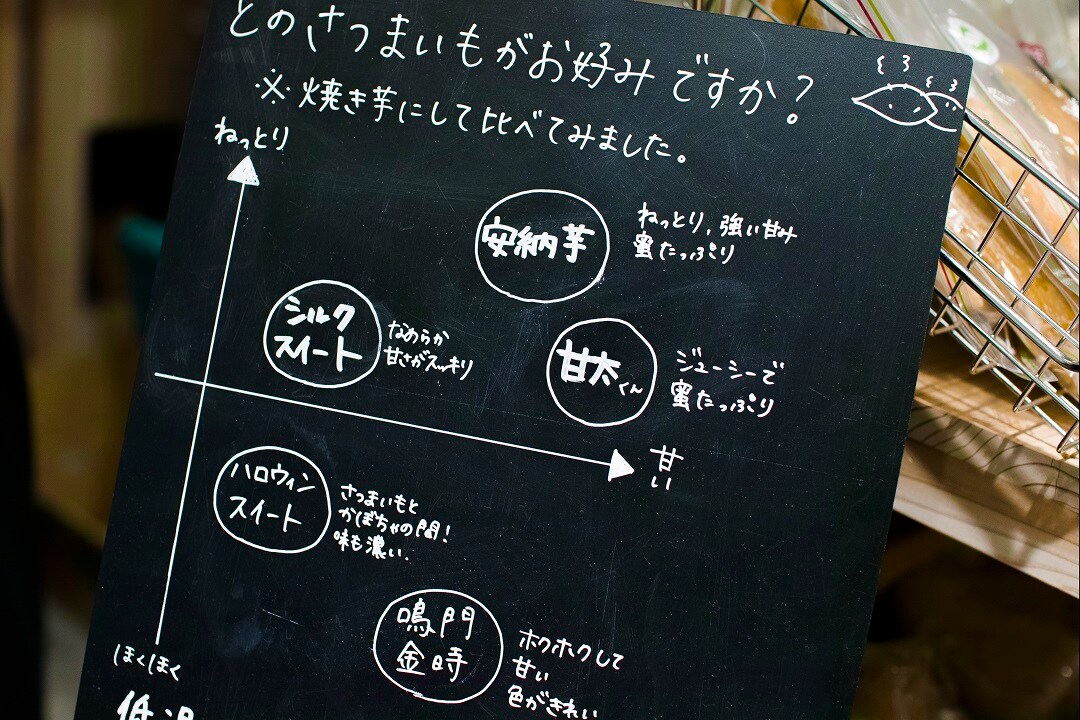 どのさつまいもがお好みですか?
※焼き芋にして比べてみました。
ねっとり
安納芋
ねっとり、強い甘み
蜜たっぷり
シルク
スイート
なめらか
甘さがスッキリ
甘太くん
ジューシーで
蜜たっぷり
甘い
ハロウィン
スイート
さつまいもと
かぼちゃの間!
味も濃い.
鳴門
金時
ホクホクして
甘い
色がきれい
ほくほく
低温